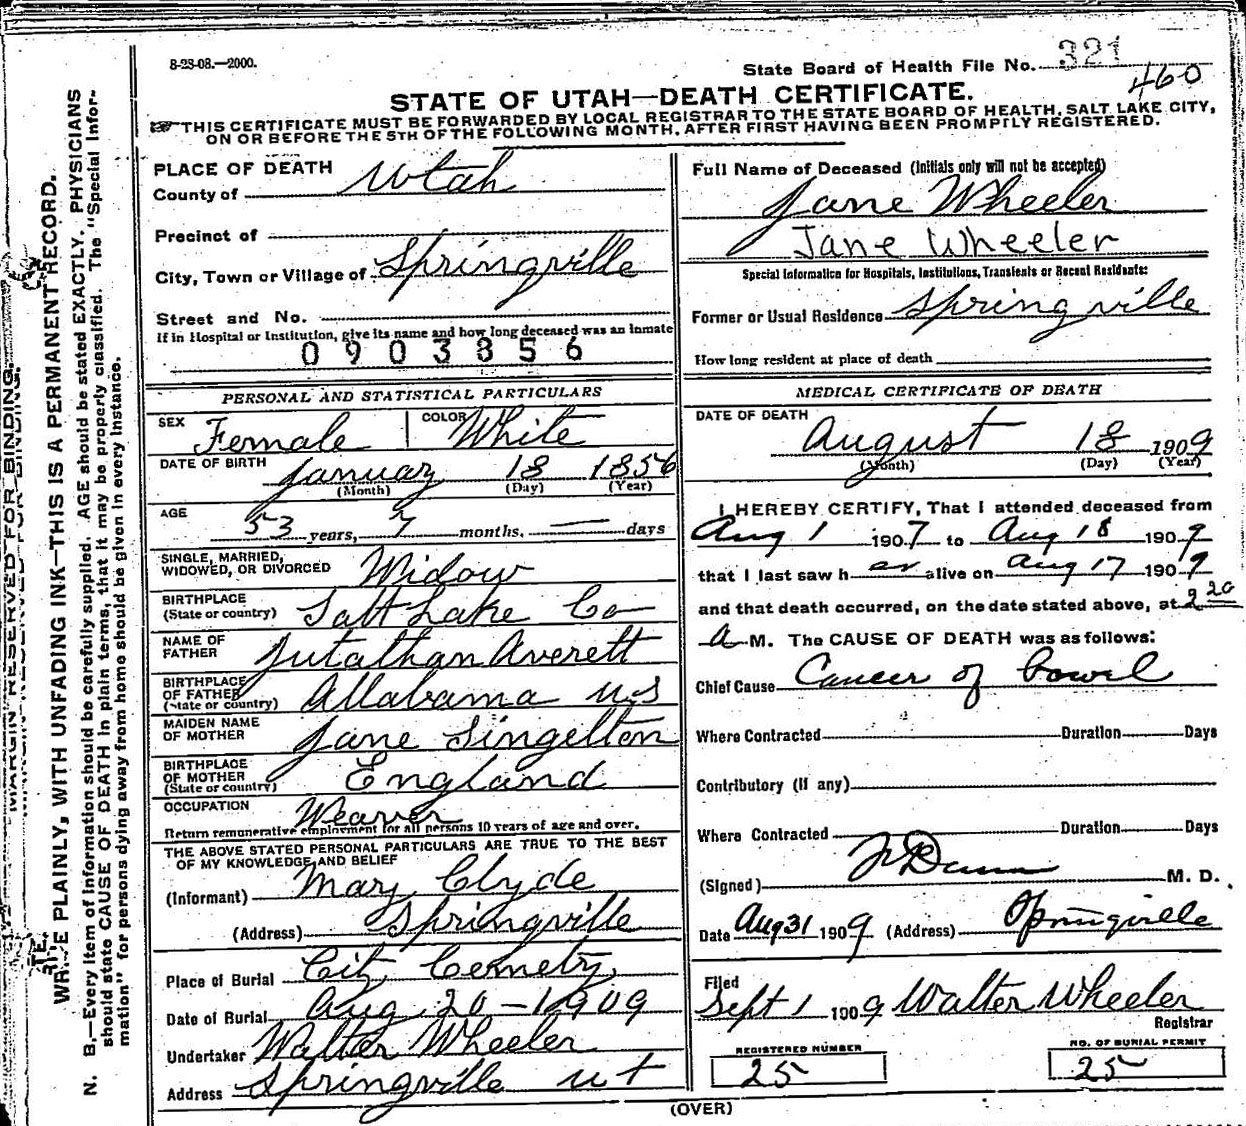 8-23-08.—2000.
State Board of Health File No. 321
460
STATE OF UTAH—DEATH CERTIFICATE.
THIS CERTIFICATE MUST BE FORWARDED BY LOCAL REGISTRAR TO THE STATE BOARD OF HEALTH, SALT LAKE CITY,
ON OR BEFORE THE 5TH OF THE FOLLOWING MONTH, AFTER FIRST HAVING BEEN PROMPTLY REGISTERED.
MARGIN RESERVED FOR BINDING.
WRITE PLAINLY, WITH UNFADING INK—THIS IS A PERMANENT RECORD.
N. B.—Every item of information should be carefully supplied. AGE should be stated EXACTLY. PHYSICIANS
should state CAUSE OF DEATH in plain terms, that it may be properly classified. The "Special Infor-
mation" for persons dying away from home should be given in every instance.
PLACE OF DEATH
County of Utah
Precinct of
City, Town or Village of Springville
Street and No.
If in Hospital or Institution, give its name and how long deceased was an inmate
0903856
PERSONAL AND STATISTICAL PARTICULARS
SEX Female COLOR White
DATE OF BIRTH January 18 1856
(Month) (Day) (Year)
AGE
53 years, 7 months. — days
SINGLE, MARRIED,
WIDOWED, OR DIVORCED Widow
BIRTHPLACE
(State or country) Salt Lake Co
NAME OF
FATHER Jutathan Averett
BIRTHPLACE
OF FATHER
(State or country) Allabama U S
MAIDEN NAME
OF MOTHER Jane Singelton
BIRTHPLACE
OF MOTHER
(State or country) England
OCCUPATION Weaver
Return remunerative employment for all persons 10 years of age and over.
THE ABOVE STATED PERSONAL PARTICULARS ARE TRUE TO THE BEST
OF MY KNOWLEDGE AND BELIEF
(Informant) Mary Clyde
(Address) Springville
Place of Burial City Cemetry
Date of Burial Aug 20-1909
Undertaker Walter Wheeler
Address Springville ut
Full Name of Deceased (Initials only will not be accepted)
Jane Wheeler
Jane Wheeler
Special Information for Hospitals, Institutions, Transients or Recent Residents:
Former or Usual Residence Springville
How long resident at place of death
MEDICAL CERTIFICATE OF DEATH
DATE OF DEATH
August 18 1909
(Month) (Day) (Year)
I HEREBY CERTIFY, That I attended deceased from
Aug 1 1907 to Aug 18 1909
that I last saw her alive on Aug 17 1909
and that death occurred, on the date stated above, at 2 20
a M. The CAUSE OF DEATH was as follows:
Chief Cause Cancer of bowel
Where Contracted Duration Days
Contributory (if any)
Where Contracted Duration Days
(Signed) M. D.
Date Aug 31 1909 (Address) Springville
Filed
Sept 1 1909 Walter Wheeler
Registrar
REGISTERED NUMBER
25
NO. OF BURIAL PERMIT
25
(OVER)